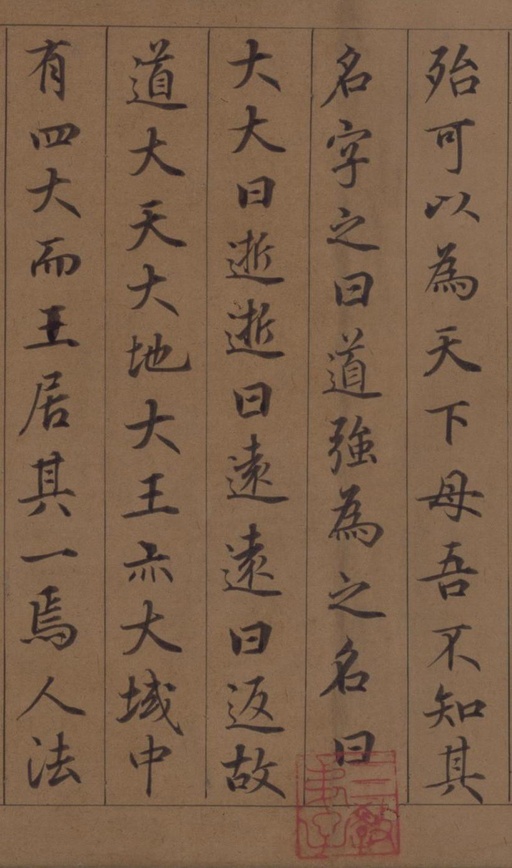 殆可以為天下母吾不知其
名字之曰道強為之名曰
大大曰逝逝曰遠遠曰返故
道大天大地大王亦大域中
有四大而王居其一焉人法